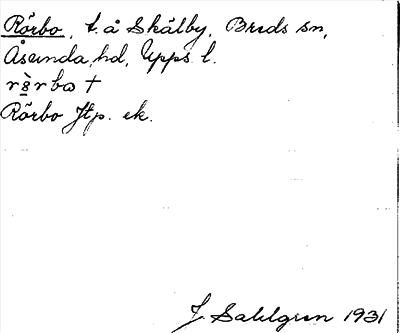 Rörbo, t. å Skälby, Breds sn,
Åsunda hd, Upps. l.
rö̀rbo †
Rörbo Jtp. ek.
J. Sahlgren 1931